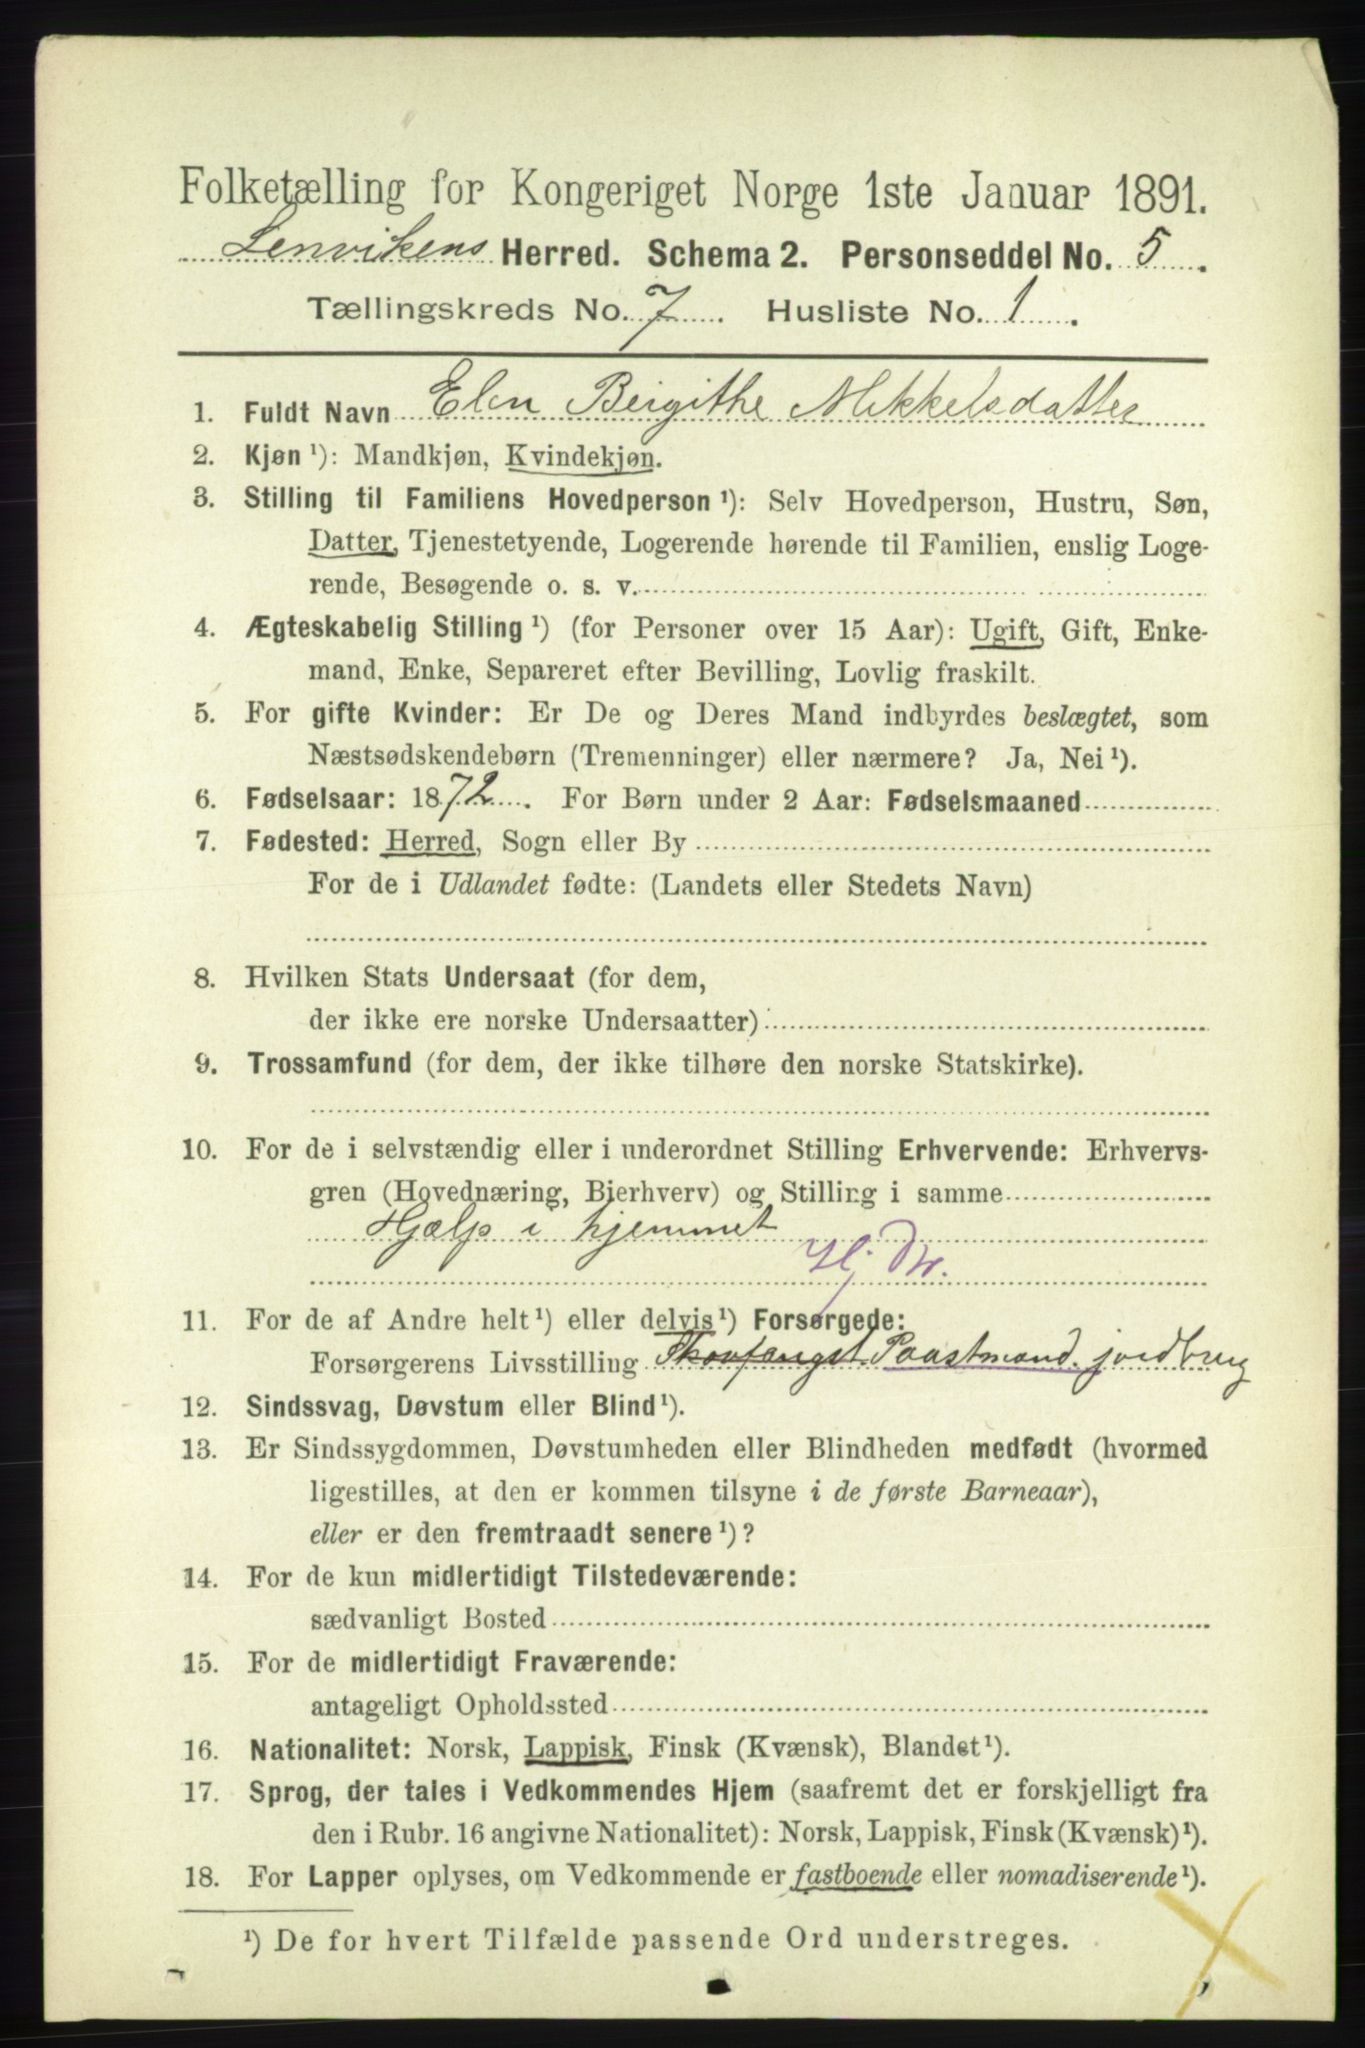 Folketælling for Kongeriget Norge 1ste Januar 1891.
Lenvikens Herred. Schema 2. Personseddel No. 5.
Tællingskreds No. 7. Husliste No. 1.
1. Fuldt Navn Elen Birgithe Mikkelsdatter
2. Kjøn ¹): Mandkjøn, Kvindekjøn.
3. Stilling til Familiens Hovedperson ¹): Selv Hovedperson, Hustru, Søn,
Datter, Tjenestetyende, Logerende hørende til Familien, enslig Loge-
rende, Besøgende o. s. v.
4. Ægteskabelig Stilling ¹) (for Personer over 15 Aar): Ugift, Gift, Enke-
mand, Enke, Separeret efter Bevilling, Lovlig fraskilt.
5. For gifte Kvinder: Er De og Deres Mand indbyrdes beslægtet, som
Næstsødskendebørn (Tremenninger) eller nærmere? Ja, Nei ¹).
6. Fødselsaar: 1872. For Børn under 2 Aar: Fødselsmaaned
7. Fødested: Herred, Sogn eller By
For de i Udlandet fødte: (Landets eller Stedets Navn)
8. Hvilken Stats Undersaat (for dem,
der ikke ere norske Undersaatter)
9. Trossamfund (for dem, der ikke tilhøre den norske Statskirke).
10. For de i selvstændig eller i underordnet Stilling Erhvervende: Erhvervs-
gren (Hovednæring, Bierhverv) og Stilling i samme
Hjælp i hjemmet
Hj. Dtr.
11. For de af Andre helt ¹) eller delvis ¹) Forsørgede:
Forsørgerens Livsstilling jordbrug
12. Sindssvag, Døvstum eller Blind ¹).
13. Er Sindssygdommen, Døvstumheden eller Blindheden medfødt (hvormed
ligestilles, at den er kommen tilsyne i de første Barneaar),
eller er den fremtraadt senere ¹)?
14. For de kun midlertidigt Tilstedeværende:
sædvanligt Bosted
15. For de midlertidigt Fraværende:
antageligt Opholdssted
16. Nationalitet: Norsk, Lappisk, Finsk (Kvænsk), Blandet ¹).
17. Sprog, der tales i Vedkommendes Hjem (saafremt det er forskjelligt fra
den i Rubr. 16 angivne Nationalitet): Norsk, Lappisk, Finsk (Kvænsk) ¹).
18. For Lapper oplyses, om Vedkommende er fastboende eller nomadiserende ¹).
¹) De for hvert Tilfælde passende Ord understreges.